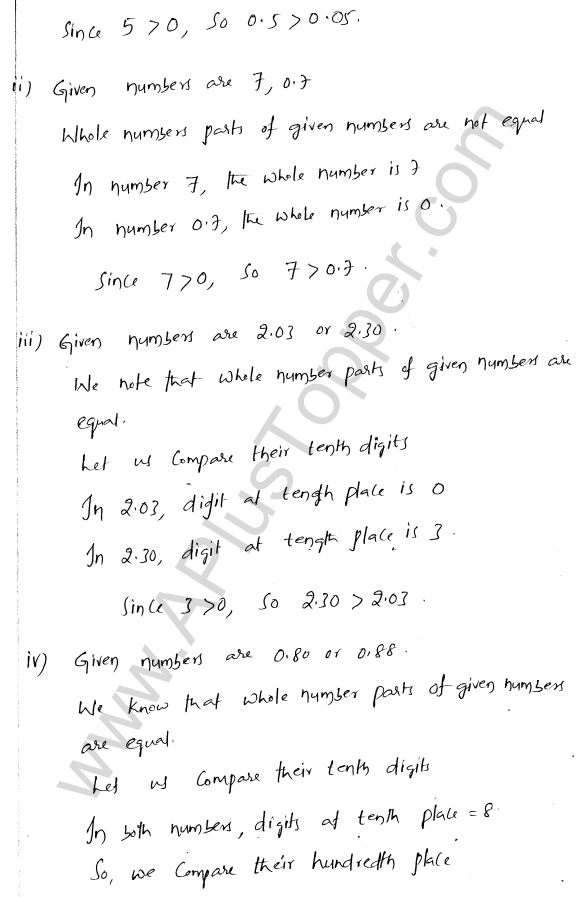 Since 5 > 0, So 0.5 > 0.05.
ii) Given numbers are 7, 0.7
Whole numbers parts of given numbers are not equal
In number 7, the whole number is 7
In number 0.7, the whole number is 0.
Since 7 > 0, So 7 > 0.7.
iii) Given numbers are 2.03 or 2.30.
We note that whole number parts of given numbers are
equal.
Let us Compare their tenth digits
In 2.03, digit at tength place is 0
In 2.30, digit at tength place is 3.
Since 3 > 0, So 2.30 > 2.03.
iv) Given numbers are 0.80 or 0.88.
We know that whole number parts of given numbers
are equal.
Let us Compare their tenth digits
In both numbers, digits at tenth place = 8.
So, we Compare their hundredth place
www.APlusTopper.com